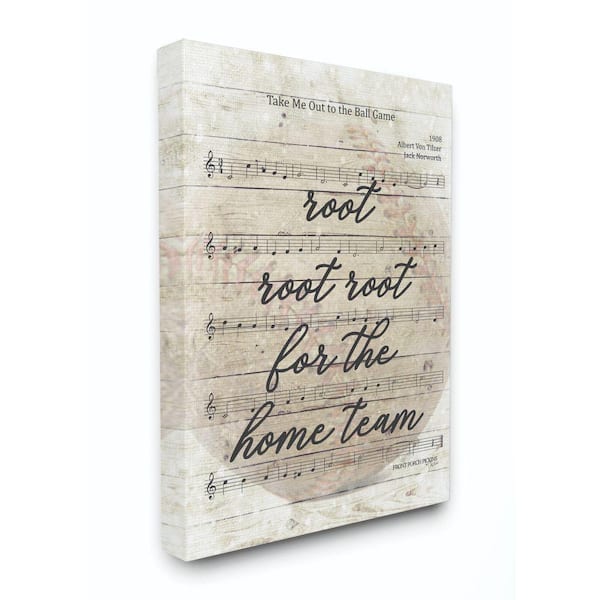 Take Me Out to the Ball Game
1908
Albert Von Tilzer
Jack Norworth
root
root root
for the
home team
FRONT PORCH PICKINS